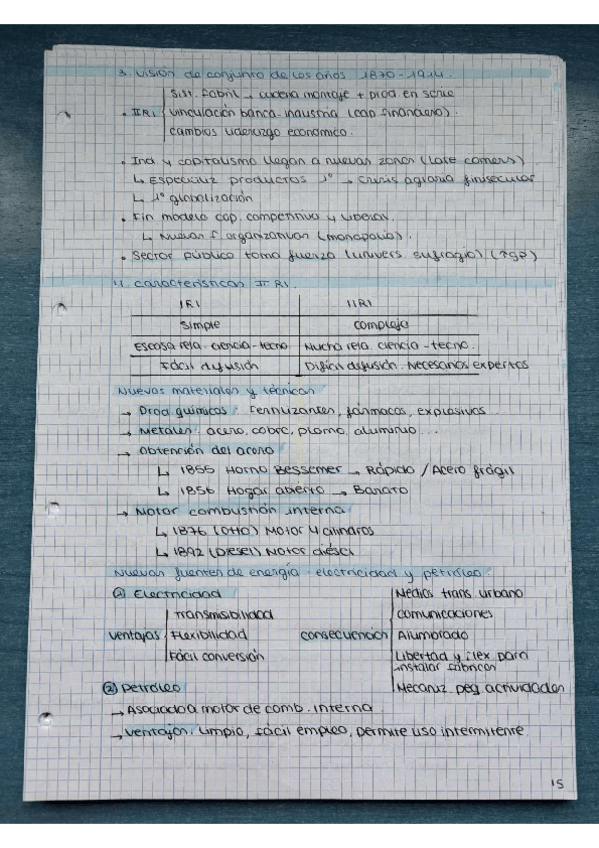 3. Visión de conjunto de los años 1870-1914.
Sist. fabril → cadena montaje + prod en serie
• IIRI vinculación banca-industria (cap financiero).
cambios liderazgo económico.
• Ind y capitalismo llegan a nuevas zonas (late comers)
↳ Especializ productos 1º → crisis agraria finisecular
↳ 1ª globalización
• Fin modelo cap. competitivo y liberal.
↳ Nuevas f. organizativas (monopolio).
• Sector público toma fuerza (univers. sufragio) (↑gp)
4. características IIRI.
IRI IIRI
Simple Compleja
Escasa rela. ciencia-tecno Mucha rela. ciencia-tecno.
Fácil difusión Difícil difusión. Necesarios expertos
Nuevos materiales y técnicas
→ Prod químicos: Fertilizantes, fármacos, explosivos
→ Metales: acero, cobre, plomo, aluminio...
→ Obtención del acero
↳ 1855 Horno Bessemer → Rápido / Acero frágil
↳ 1856 Hogar abierto → Barato
→ Motor combustión interna
↳ 1876 (Otto) Motor 4 cilindros
↳ 1892 (Diesel) Motor diésel
Nuevas fuentes de energía: electricidad y petróleo.
① Electricidad
ventajas Transmisibilidad
Flexibilidad
Fácil conversión
consecuencias Medios trans. urbano
comunicaciones
Alumbrado
Libertad y flex para
instalar fábricas
Mecaniz. peq. actividades
② Petróleo
→ Asociado a motor de comb. interna.
→ Ventajas: limpio, fácil empleo, permite uso intermitente
15